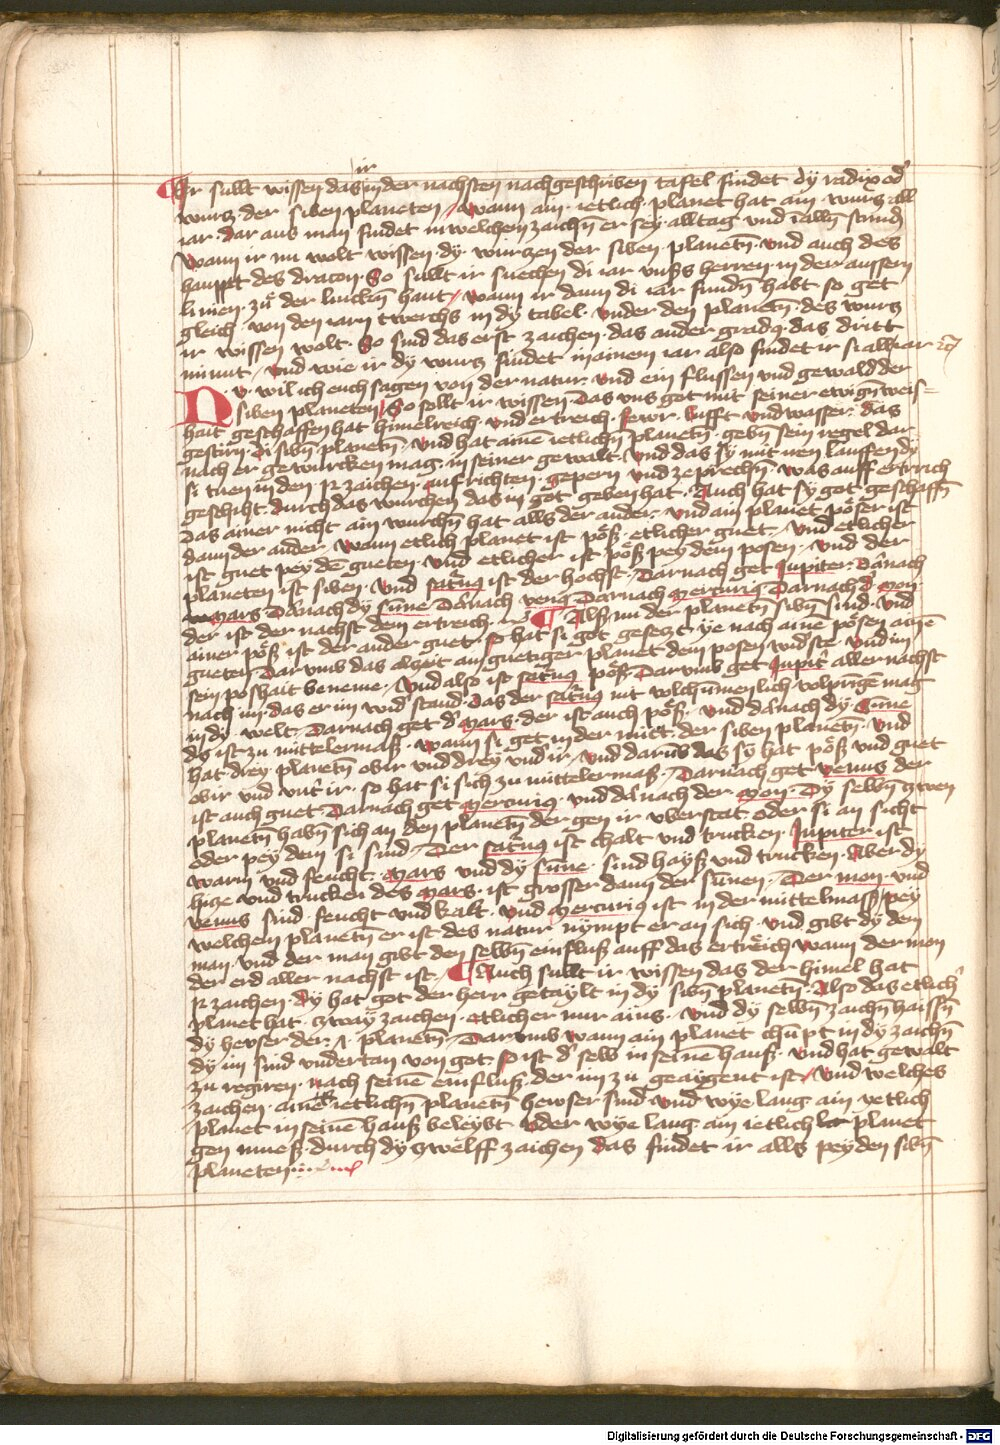 ir
Ir sullt wissen das in der nachsten nachgeschriben tafel findet dy radix od̕
wurtz · der siben planeten / wann ain · ietlich · planet hat ain · wurtz all
iar · dar aus man findet in welchem zaichn̄ er sey · alltag vnd ialln̄ stund
Wann ir nu wolt wissen · dy · wurtzen der siben planetn̄ · vnd auch des
hauppt des dracon · So sullt ir suechen di iar vnsers herren · in der aussern
linien · zu der lincken̄ hant / wann ir dann di iar fundn̄ habt so get
gleich · von den iarn twerchs in dy tabel · vnder den planetn̄ · des wurtz
ir wissen wolt · So sind das erst zaichen · das ander gradꝯ · das dritt
minut · vnd wie ir dy wurtz findet in ainem iar also findet ir si allw iar
NV · wil ich euch sagen von der natur · vnd ein flussen vnd gewald der
siben planeten / So sollt ir wissen das vns got mit seiner ewign̄ weis=
hait geschaffen hat himelreich · vnd ertreich · fewr · lufft vnd wasser · das
gestirn · di sibn̄ planetn̄ · vnd hat aine ietlichn̄ planetn̄ · gebn̄ sein regel dar
nach er gewurcken mag · in seiner gewalt · vnd das sy mit iren lauffen dy
si tuen in den 12 zaichen · aufrichten · gepern vnd zeprechn̄ · was auff ertrich
geschiht · durch das wurchen das in got geben hat · Auch hat sy got · geschaffn̄
das ainer nicht ain wurchn̄ hat alls der ander · vnd ain planet pöser ist
dann der ander · wann etlich planet ist pöß · etlicher guet · vnd etlicher
ist guet pey dē gueten · vnd etlicher ist pöß pey dem posen · vnd der
planeten ist siben · vnd satn̄ꝯ ist der hochst · Darnach get Jupiter · Da᷑nach
mars Da᷑nach dy sūne Da᷑nach venꝯ Darnach mercuriꝯ Darnach d̕ mon
der ist der nachst dem ertreich · ¶ Als nu der planetn̄ sibn̄ sind · vnd
ainer pöß ist der ander guet · so hat si got gesetzt · ye nach aine pösen aine
gueten Darumb das alzeit ain guetiger planet dem posen wid̕ste · vnd im
sein poshait beneme · vnd also ist satn̄ꝯ pöß · Darumb get Jupit̕ aller nachst
nach im · das er im wid̕stand · das der satn̄ꝯ nit volchūmenlich volpringē mag
in dy · welt · Darnach get d̕ mars · der ist auch pöß · vnd da᷑nach dy · Sūne
dy ist zu mittelermaß · wann si get in der mitt · der siben planetn̄ · vnd
hat drey planetn̄ obir vnd drey vnd̕ ir · vnd darūb das sy hat pöß vnd guet
obir vnd vnt̕ ir · so hat si sich zu mittelermaß · Darnach get venus der
ist auch guet · Darnach get mercuriꝯ · vnd da᷑nach der mon · Dy selbn̄ zwen
planetn̄ habn̄ sich an den planetn̄ der gen ir vberstat oder si an sicht
oder pey dem si sind · Der satn̄ꝯ ist chalt vnd trucken · Jupiter ist
warm vnd feucht · mars vnd dy sūne · sind hayß vnd trucken · Aber dy
hitze vnd trucken des mars · ist grosser dann der sūnen · Der mon · vnd
venus sind · feucht vnd kalt · vnd mercuriꝯ ist in der mittelmaß / pey
welchem planetn̄ er ist des natur nympt er an sich · vnd gibt dy dem
man · vnd der man gibt den selbn̄ einfluß auff das ertreich wann der mon
der erd aller nachst ist · ¶ Auch sullt ir wissen das der himel hat
12 zaichen · dy hat got der herr getaylt in dy sibn̄ planetn̄ · Also das etlich̕
planet hat · zway zaichen · etlicher nur ains · vnd dy selbn̄ zaichn̄ haissn̄
dy hewser der · planetn̄ · Darumb wann ain planet chūpt in dy zaichn̄
dy im sind vndertan von got · so ist d̕ selb in seine hauß · vnd hat gewalt
zu regiren · nach seinē einfluß · der im zu geaygent ist / vnd welches
zaichen · aine ietlichn̄ planetn̄ hewser sind · vnd wye lang ain yetlich
planet in seinē hauß beleybt oder wye lang ain ietlich planet
gen mueß · durch dy zwelff zaichen das findet ir alls pey den sibn̄
planeten